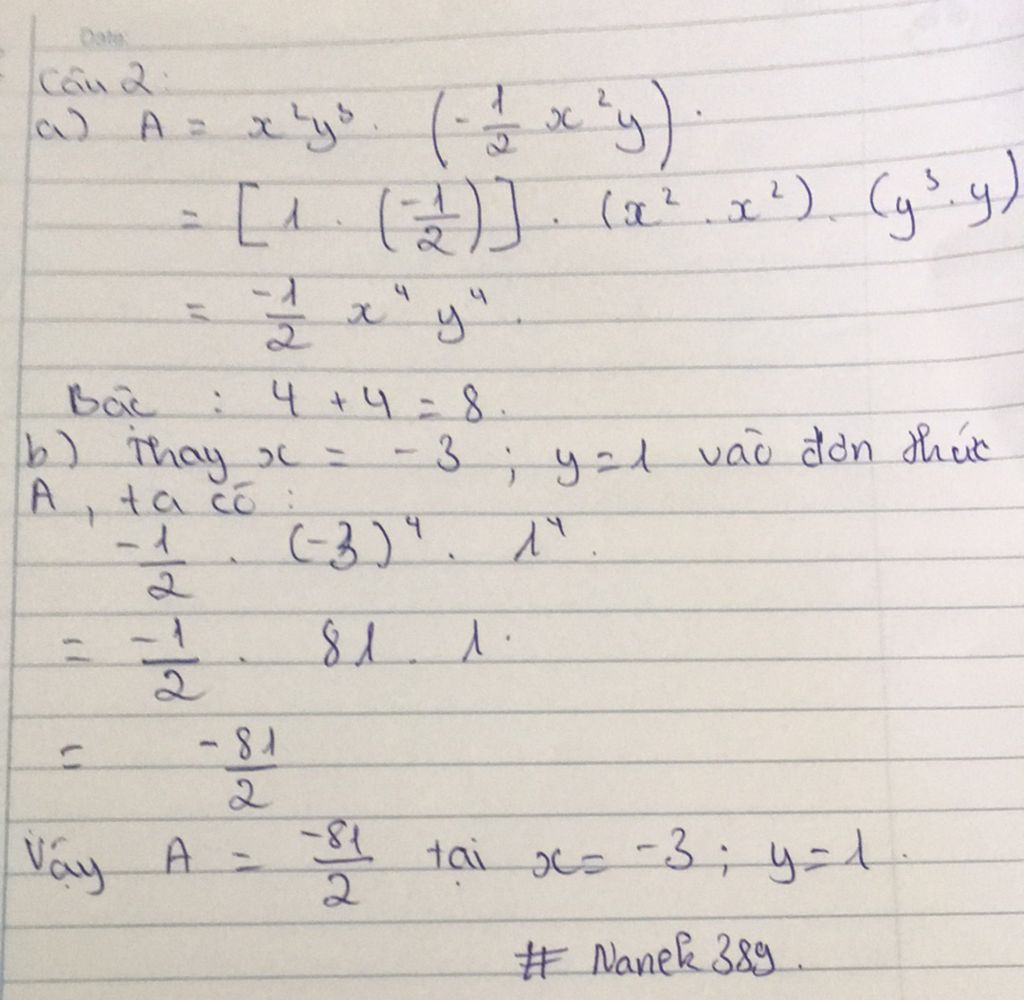 Date
Câu 2:
a) A = x²y³. (-1/2 x²y).
= [1 . (-1/2)] . (x² . x²). (y³.y)
= -1/2 x⁴ y⁴.
Bậc : 4 + 4 = 8.
b) Thay x = -3 ; y = 1 vào đơn thức
A, ta có :
-1/2 . (-3)⁴. 1⁴.
= -1/2 . 81 . 1.
= -81/2
Vậy A = -81/2 tại x = -3 ; y = 1.
# Nanek 389.